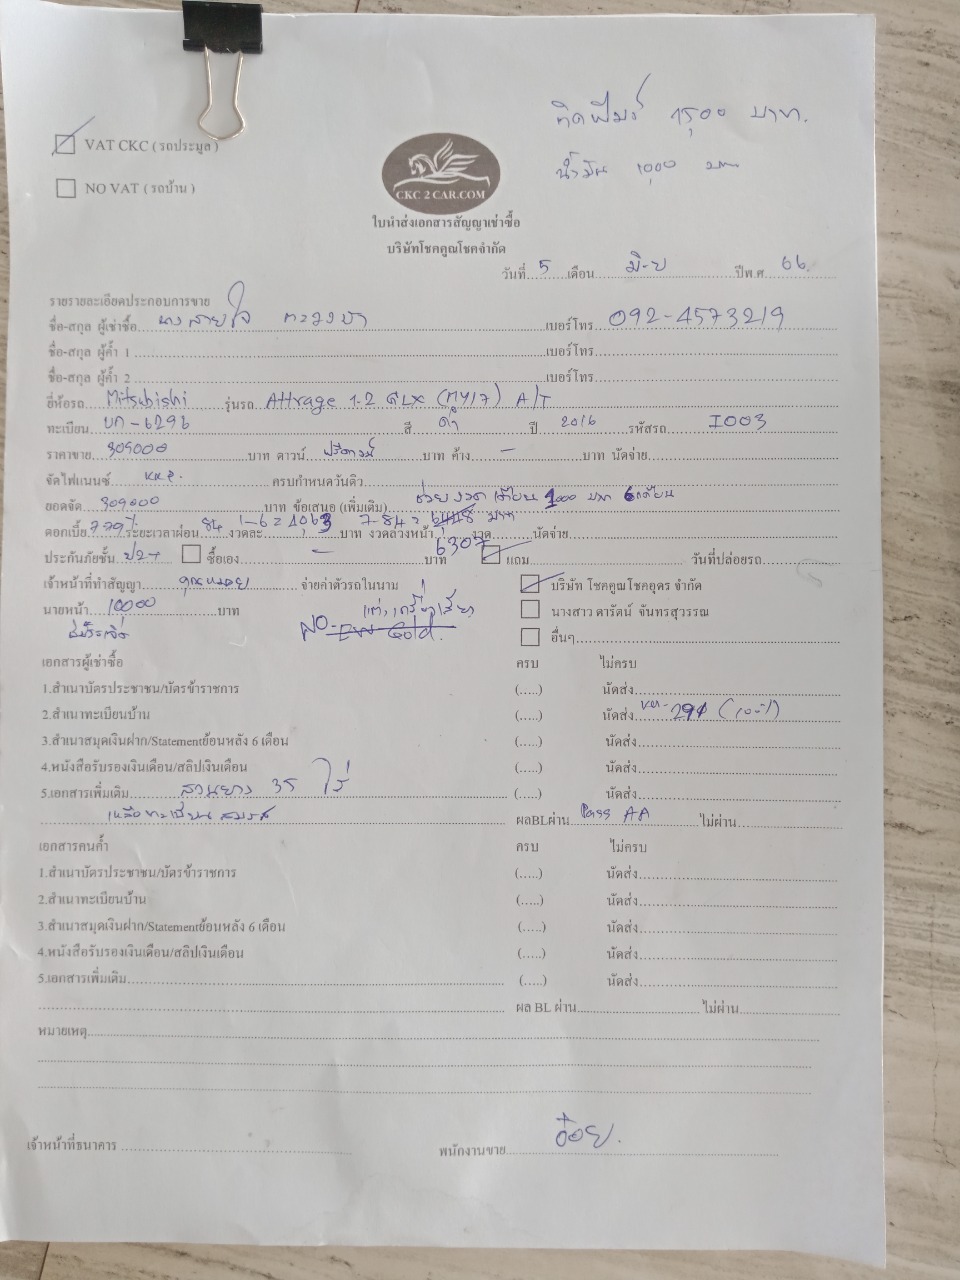 ติดฟิมร์ 1500 บาท.
น้ำมัน 1000 บาท
VAT CKC ( รถประมูล )
NO VAT ( รถบ้าน )
CKC 2 CAR.COM
ใบนำส่งเอกสารสัญญาเช่าซื้อ
บริษัทโชคคูณโชคจำกัด
วันที่ 5 เดือน มิ.ย ปีพ ศ 66
รายรายละเอียดประกอบการขาย
ชื่อ-สกุล ผู้เช่าซื้อ นางสายใจ เบอร์โทร 092-4573219
ชื่อ-สกุล ผู้ค้ำ 1 เบอร์โทร
ชื่อ-สกุล ผู้ค้ำ 2 เบอร์โทร
ยี่ห้อรถ Mitsubishi รุ่นรถ Attrage 1.2 GLX (MY17) A/T
ทะเบียน 6296 สี ดำ ปี 2016 รหัสรถ I003
ราคาขาย 309000 บาท ดาวน์ ฟรีดาวน์ บาท ค้าง - บาท นัดจ่าย
จัดไฟแนนซ์ KKP. ครบกำหนดวันติว
ยอดจัด 309000 บาท ข้อเสนอ (เพิ่มเติม) ช่วยงวด เดือน 1000 บาท 6 เดือน
ดอกเบี้ย 7.79% ระยะเวลาผ่อน 84 งวดละ 1-6 = 4063 7-84 = บาท งวดล่วงหน้า งวด นัดจ่าย
6307
ประกันภัยชั้น ป2+ ซื้อเอง - บาท แถม วันที่ปล่อยรถ
เจ้าหน้าที่ทำสัญญา คุณหน่อย จ่ายค่าตัวรถในนาม บริษัท โชคคูณโชคอุดร จำกัด
นายหน้า 10000 บาท นางสาว ดารัตน์ จันทรสุวรรณ
NO Gold. อื่นๆ
เอกสารผู้เช่าซื้อ ครบ ไม่ครบ
1.สำเนาบัตรประชาชน/บัตรข้าราชการ (.....) นัดส่ง
2.สำเนาทะเบียนบ้าน (.....) นัดส่ง
3.สำเนาสมุดเงินฝาก/Statementย้อนหลัง 6 เดือน (.....) นัดส่ง
4.หนังสือรับรองเงินเดือน/สลิปเงินเดือน (.....) นัดส่ง
5.เอกสารเพิ่มเติม สวนยาง 35 ไร่ (.....) นัดส่ง
เหลือทะเบียนสมรส ผลBLผ่าน Pass AA ไม่ผ่าน
เอกสารคนค้ำ ครบ ไม่ครบ
1.สำเนาบัตรประชาชน/บัตรข้าราชการ (.....) นัดส่ง
2.สำเนาทะเบียนบ้าน (.....) นัดส่ง
3.สำเนาสมุดเงินฝาก/Statementย้อนหลัง 6 เดือน (.....) นัดส่ง
4.หนังสือรับรองเงินเดือน/สลิปเงินเดือน (.....) นัดส่ง
5.เอกสารเพิ่มเติม (.....) นัดส่ง
ผล BL ผ่าน ไม่ผ่าน
หมายเหตุ
เจ้าหน้าที่ธนาคาร พนักงานขาย อ้อย.